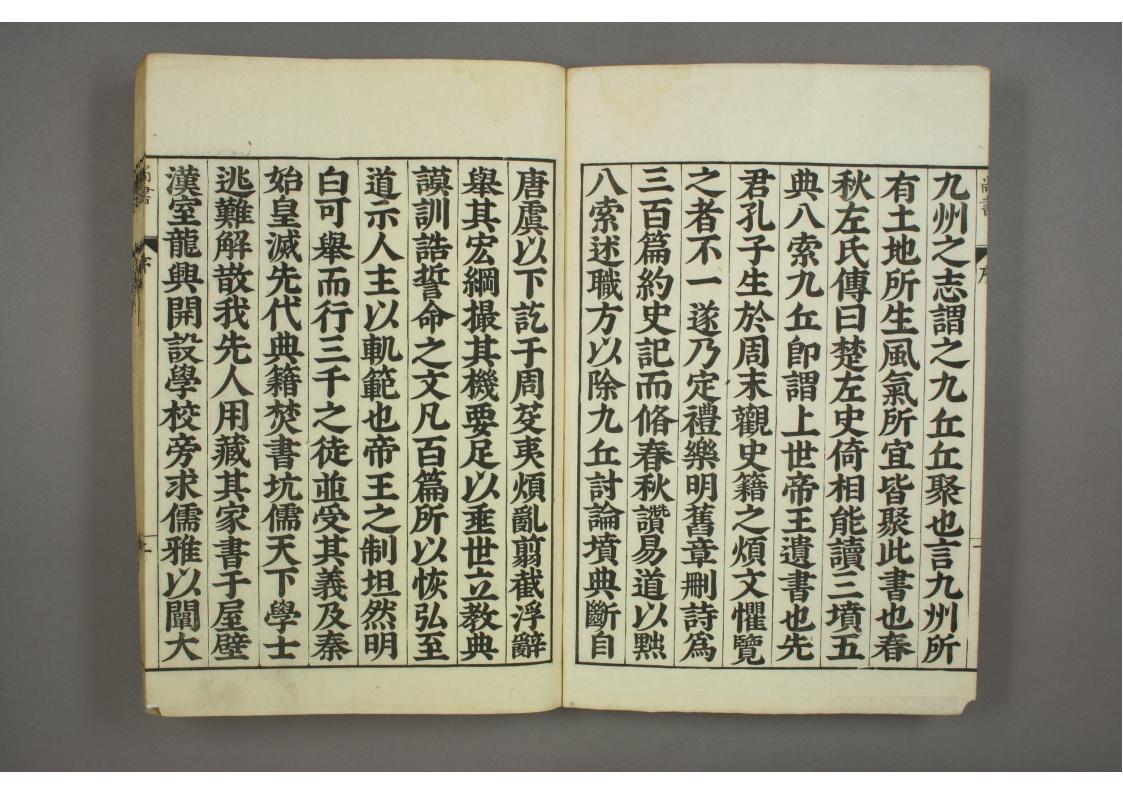 九州之志謂之九丘丘聚也言九州所
有土地所生風氣所宜皆聚此書也春
秋左氏傳曰楚左史倚相能讀三墳五
典八索九丘即謂上世帝王遺書也先
君孔子生於周末觀史籍之煩文懼覽
之者不一遂乃定禮樂明舊章刪詩為
三百篇約史記而脩春秋讚易道以黜
八索述職方以除九丘討論墳典斷自
唐虞以下訖于周芟夷煩亂翦截浮辭
舉其宏綱撮其機要足以垂世立教典
謨訓誥誓命之文凡百篇所以恢弘至
道示人主以軌範也帝王之制坦然明
白可舉而行三千之徒並受其義及秦
始皇滅先代典籍焚書坑儒天下學士
逃難解散我先人用藏其家書于屋壁
漢室龍興開設學校旁求儒雅以闡大
尚書
序